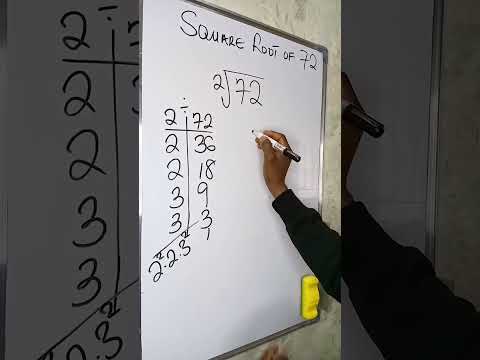 SQUARE ROOT OF 72
²√72
÷
2 72
2 36
2 18
3 9
3 3
1
2²·2·3²